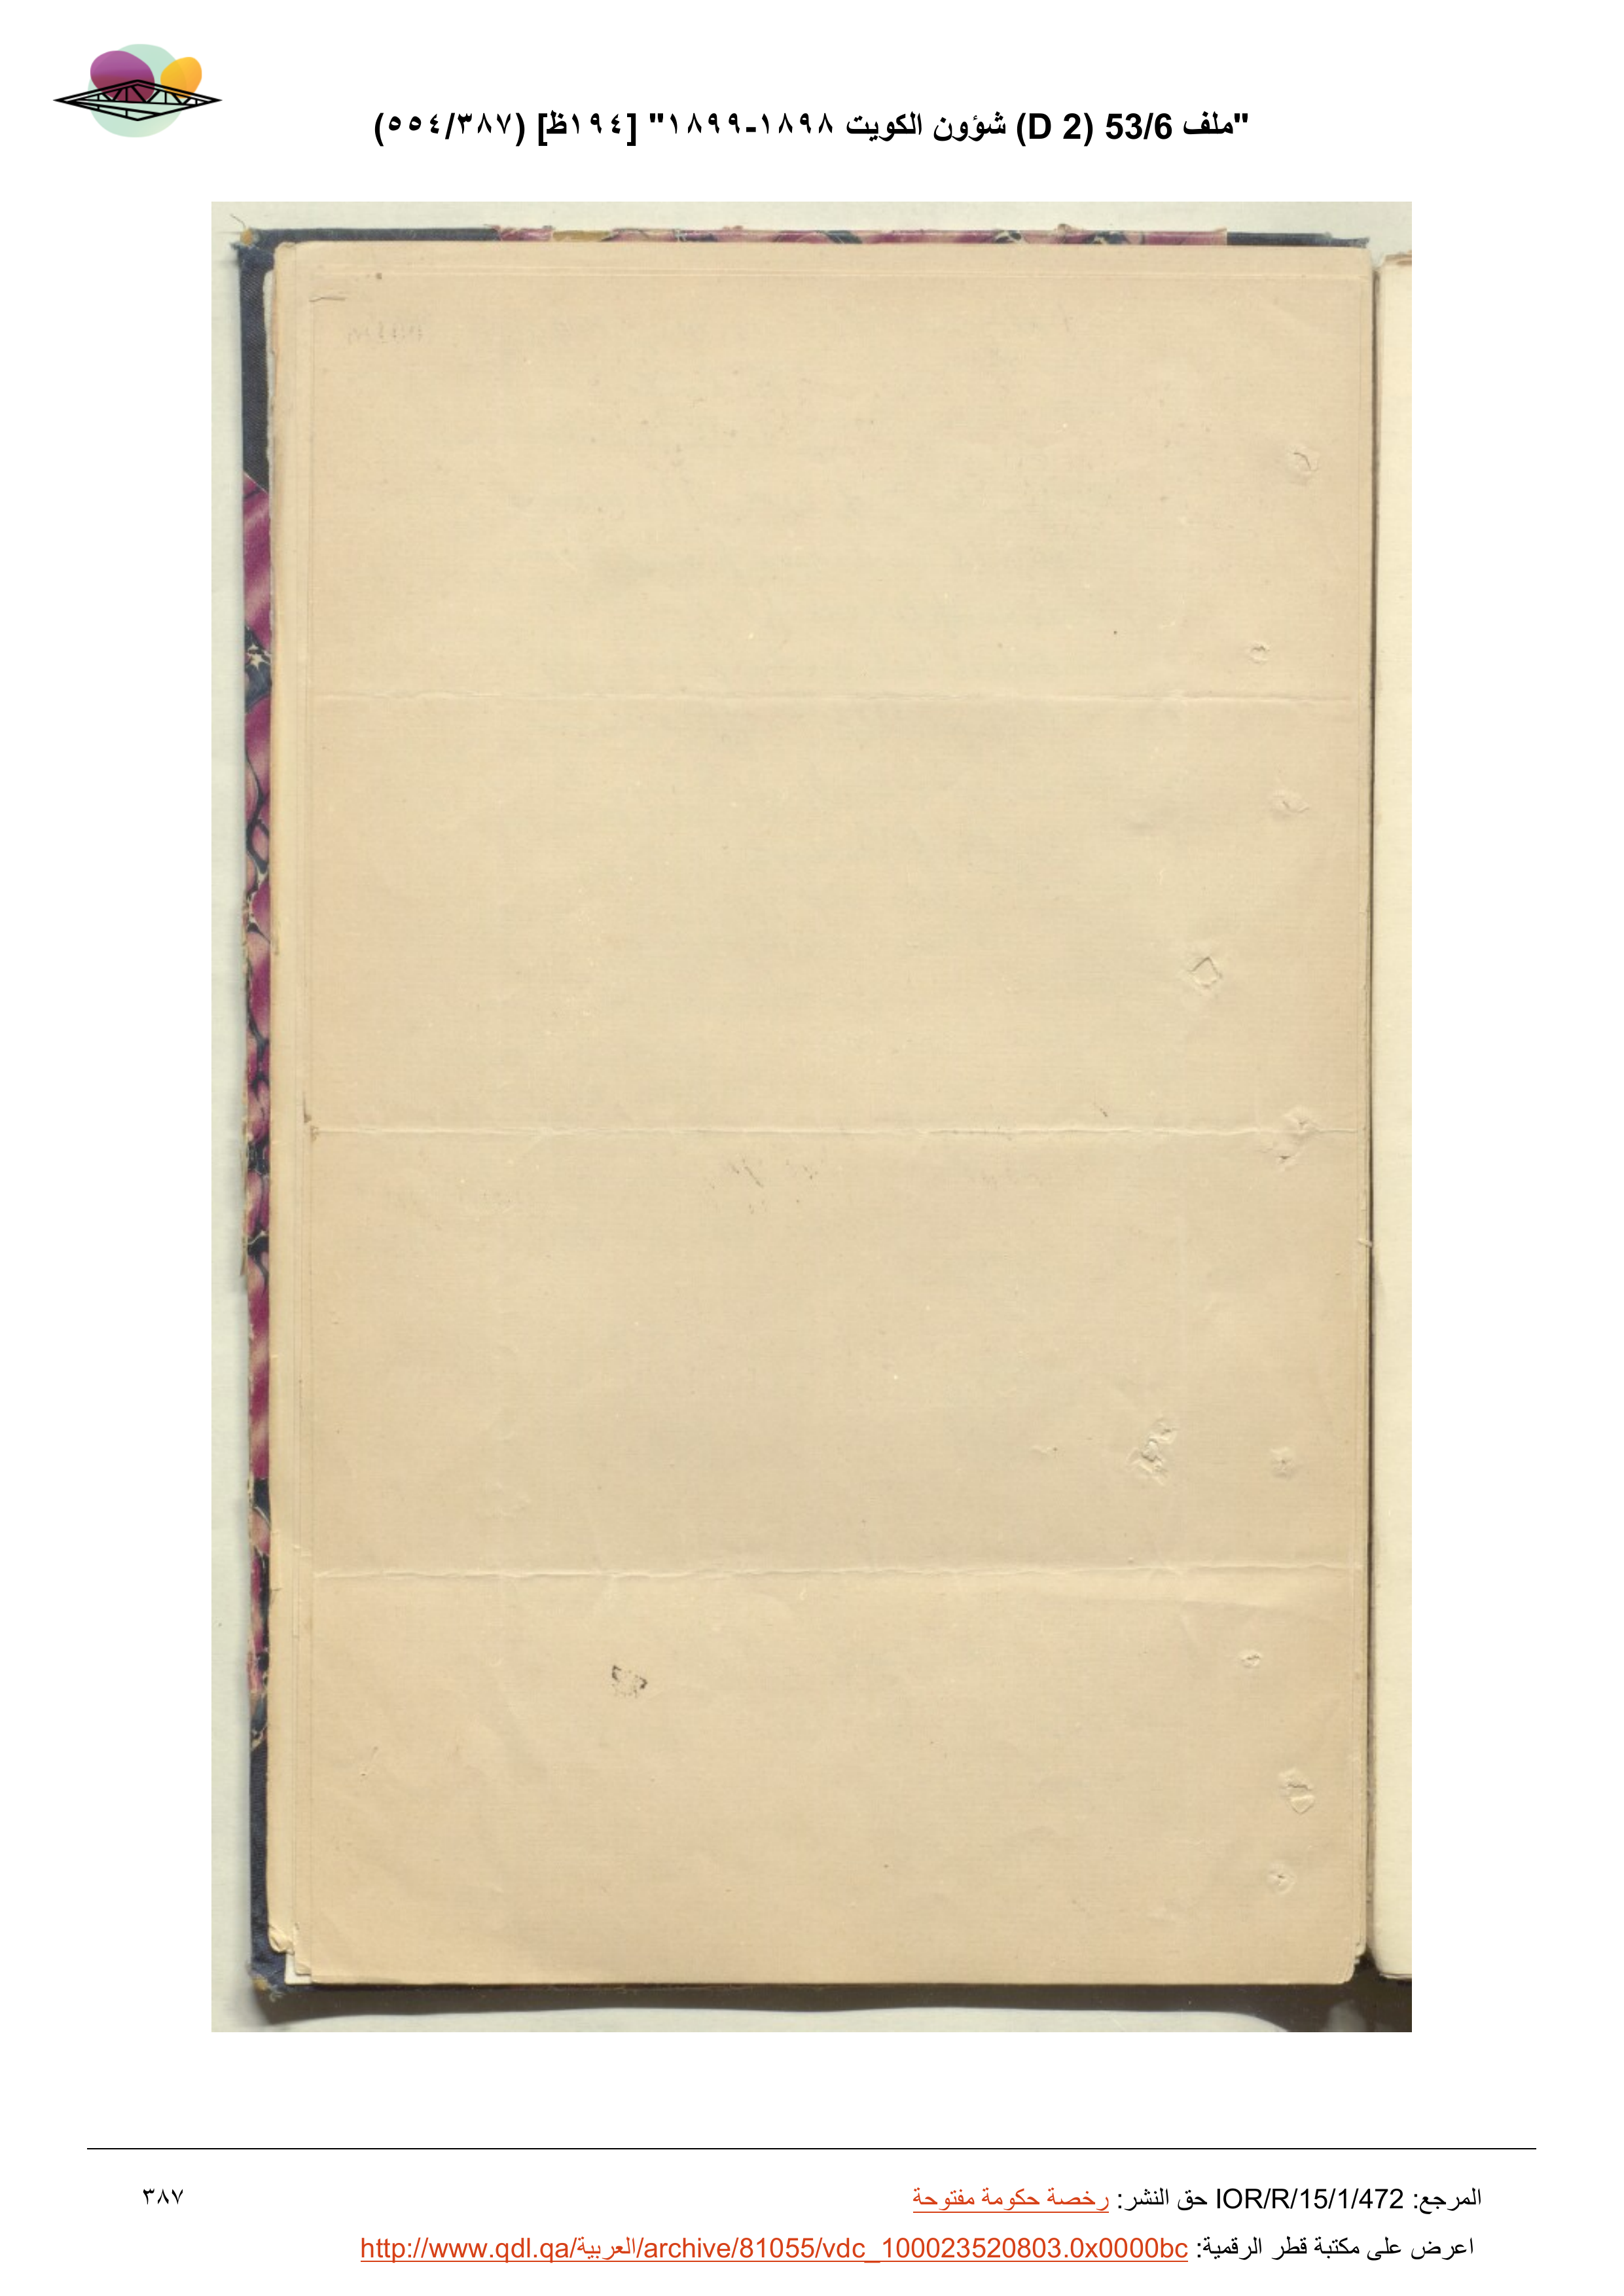 "ملف 53/6 (D 2) شؤون الكويت ١٨٩٨-١٨٩٩" [١٩٤ظ] (٥٥٤/٣٨٧)
المرجع: IOR/R/15/1/472 حق النشر: رخصة حكومة مفتوحة
٣٨٧
اعرض على مكتبة قطر الرقمية: http://www.qdl.qa/العربية/archive/81055/vdc_100023520803.0x0000bc